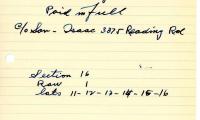 Paid in Full
c/o Son - Isaac 3875 Reading Rd
Section 16
Row 1
Lots 11-12-13-14-15-16